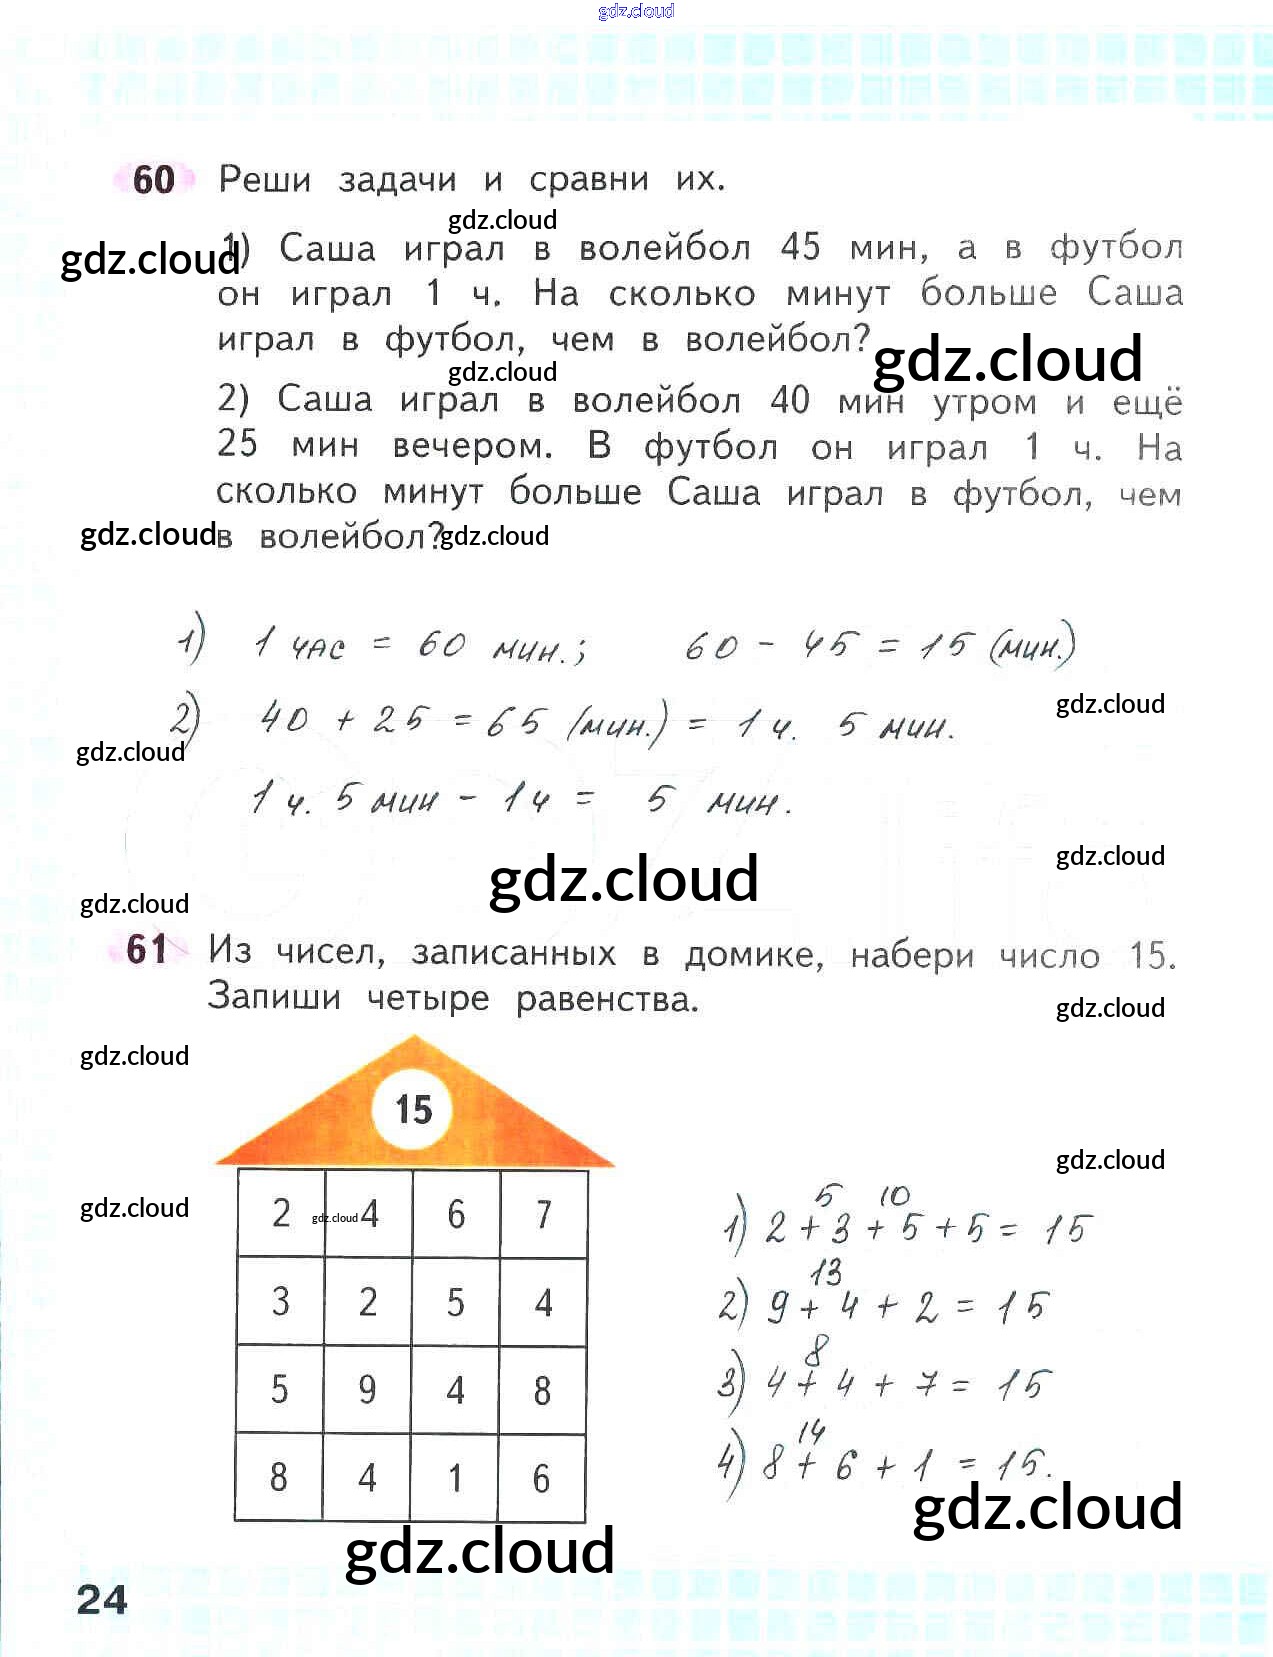 gdz.cloud
60 Реши задачи и сравни их.
gdz.cloud
gdz.cloud
1) Саша играл в волейбол 45 мин, а в футбол
он играл 1 ч. На сколько минут больше Саша
играл в футбол, чем в волейбол?
gdz.cloud
gdz.cloud
2) Саша играл в волейбол 40 мин утром и ещё
25 мин вечером. В футбол он играл 1 ч. На
сколько минут больше Саша играл в футбол, чем
в волейбол?
gdz.cloud
gdz.cloud
1) 1 час = 60 мин.; 60 - 45 = 15 (мин.)
2) 40 + 25 = 65 (мин.) = 1 ч. 5 мин.
gdz.cloud
gdz.cloud
1 ч. 5 мин - 1 ч = 5 мин.
gdz.cloud
gdz.cloud
gdz.cloud
61 Из чисел, записанных в домике, набери число 15.
Запиши четыре равенства.
gdz.cloud
gdz.cloud
15
gdz.cloud
gdz.cloud
2 4 6 7
gdz.cloud
3 2 5 4
5 9 4 8
8 4 1 6
5 10
1) 2 + 3 + 5 + 5 = 15
13
2) 9 + 4 + 2 = 15
8
3) 4 + 4 + 7 = 15
14
4) 8 + 6 + 1 = 15.
gdz.cloud
gdz.cloud
24